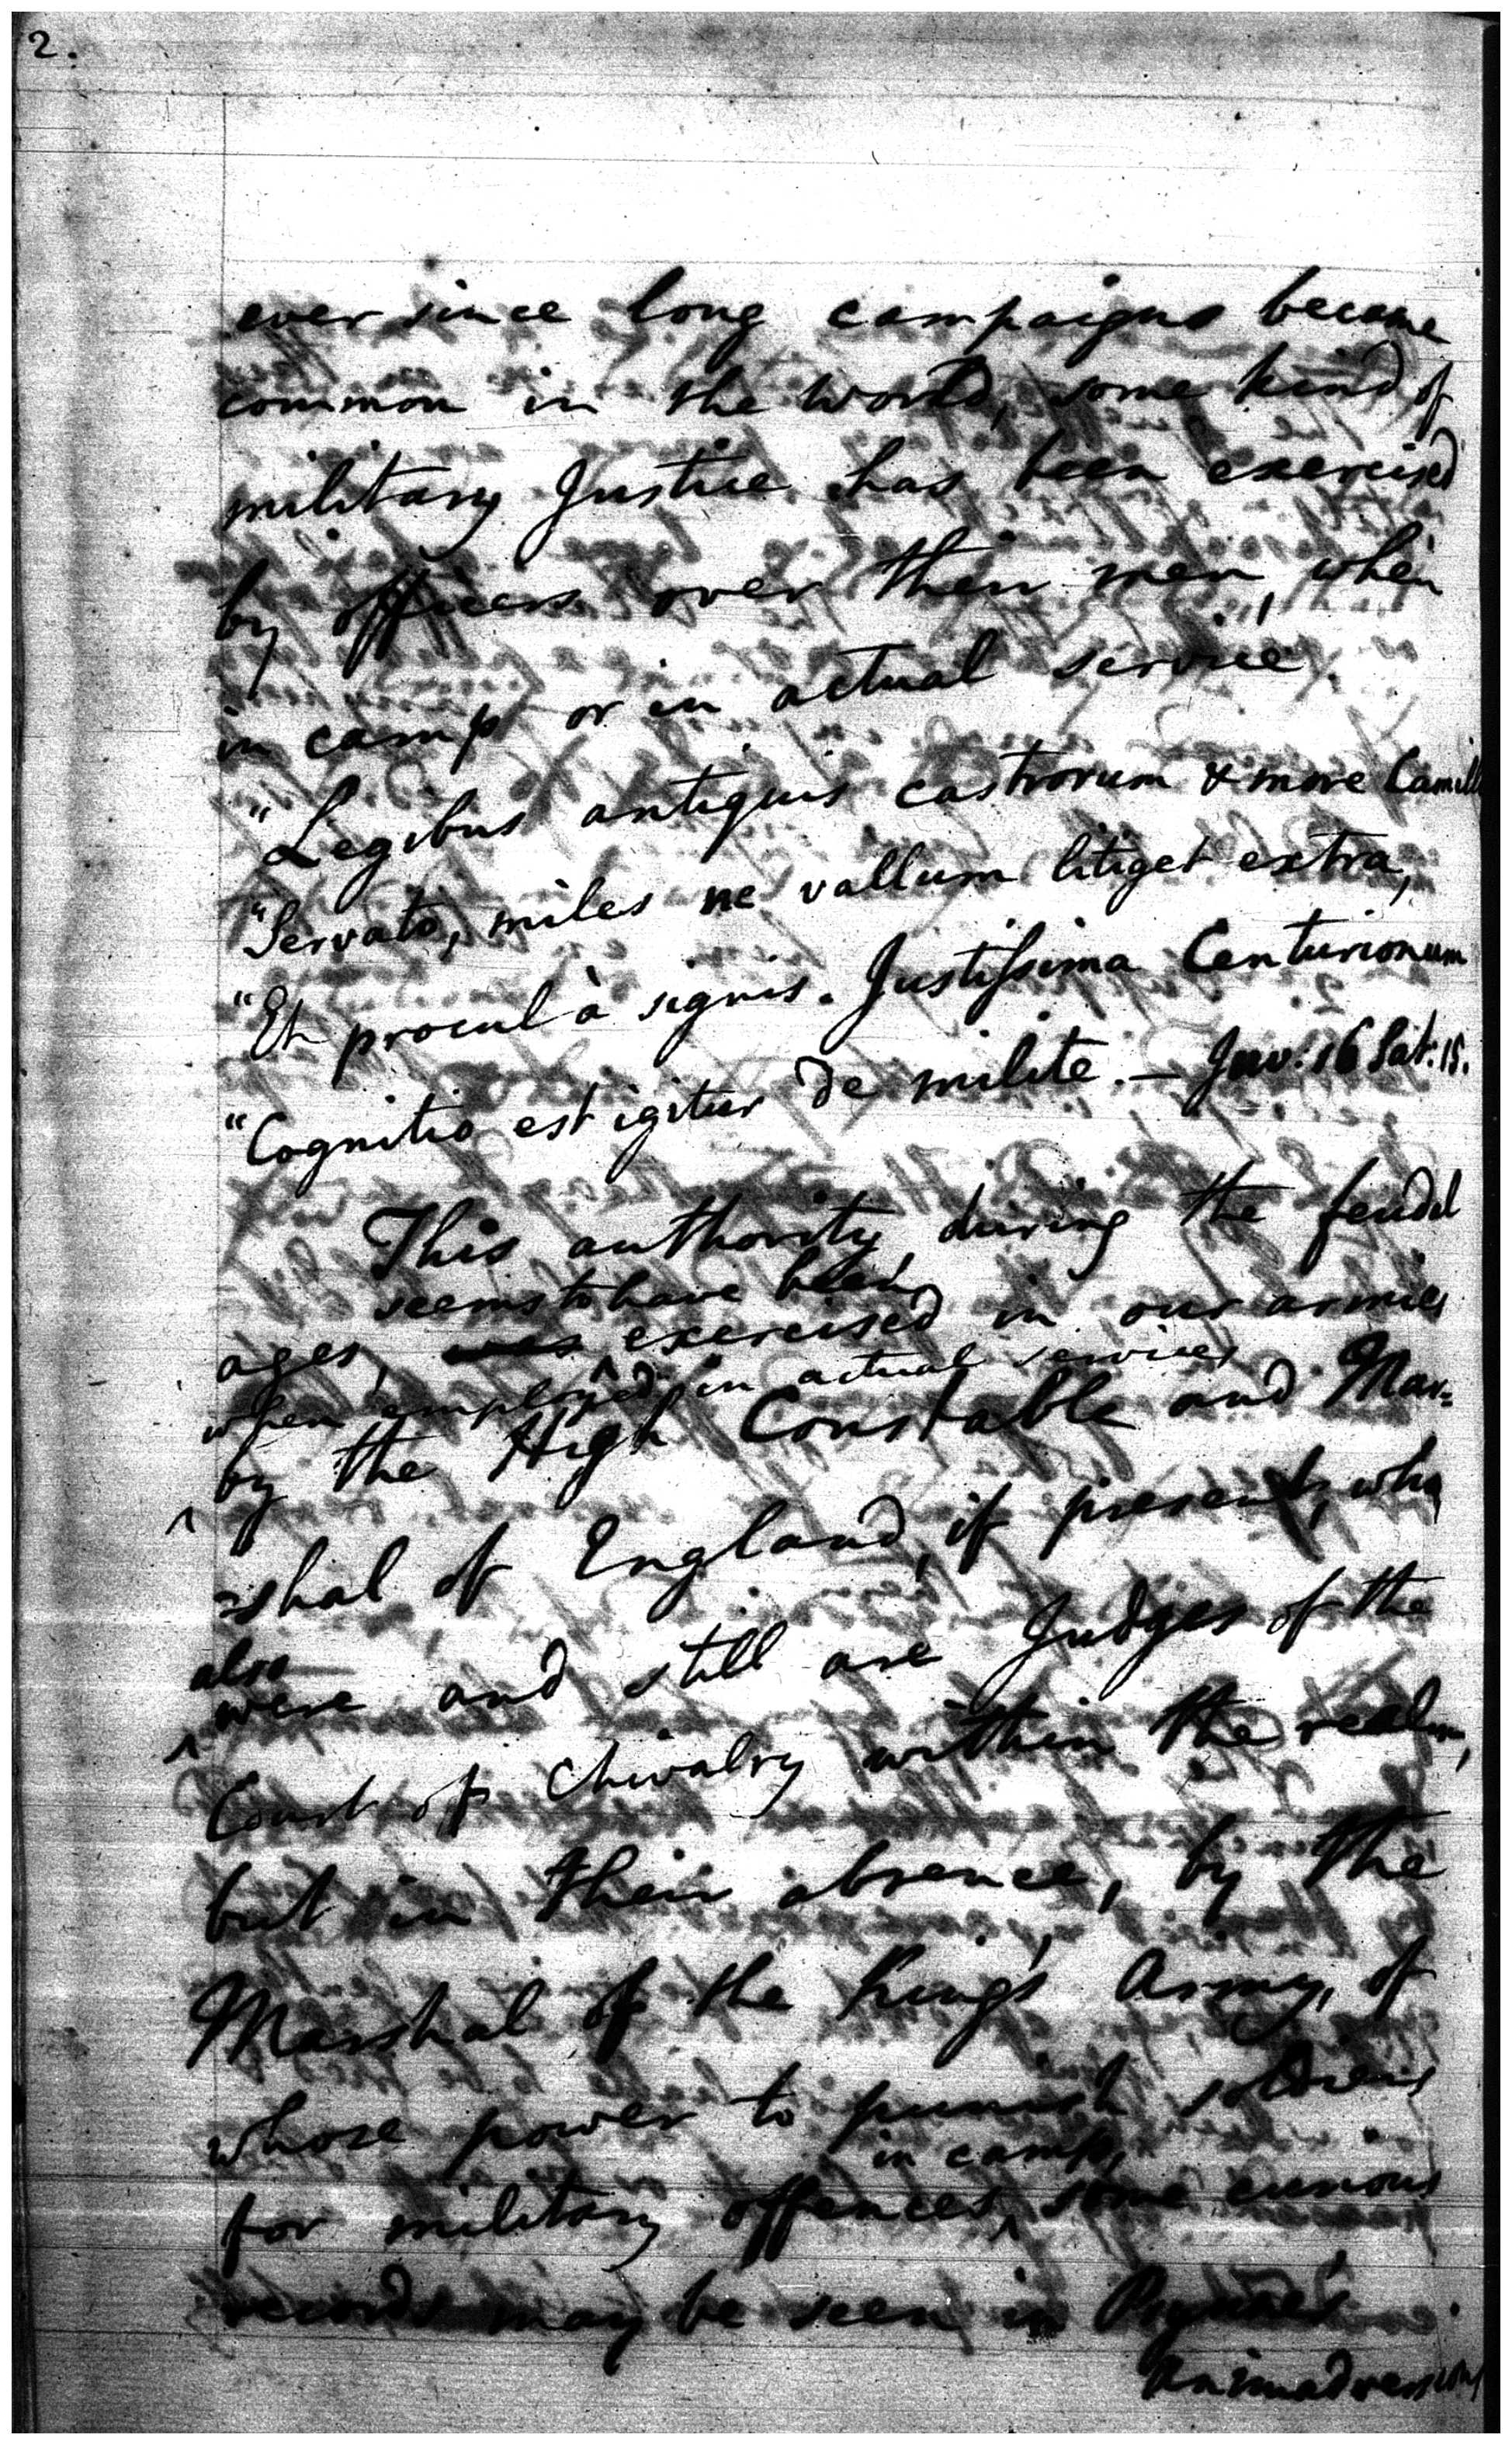 2.
ever since long campaigns became
common in the world, some kind of
military Justice has been exercised
by officers over their men, when
in camp or in actual service.
"Legibus antiquis castrorum & more Camilli
"Servato, miles ne vallum litiget extra,
"Et procul à signis. Justissima Centurionum
"Cognitio est igitur de milite. — Juv. 16 Sat. 15.
This authority, during the feudal
seems to have been
ages, was exercised in our armies
when employed in actual service,
by the High Constable and Mar=
=shal of England, if present, who
also
were and still are Judges of the
Court of Chivalry within the realm,
but in their absence, by the
Marshal of the King's Army, of
whose power to punish soldiers
in camp,
for military offences, some curious
records may be seen in Prynne's
Animadversions